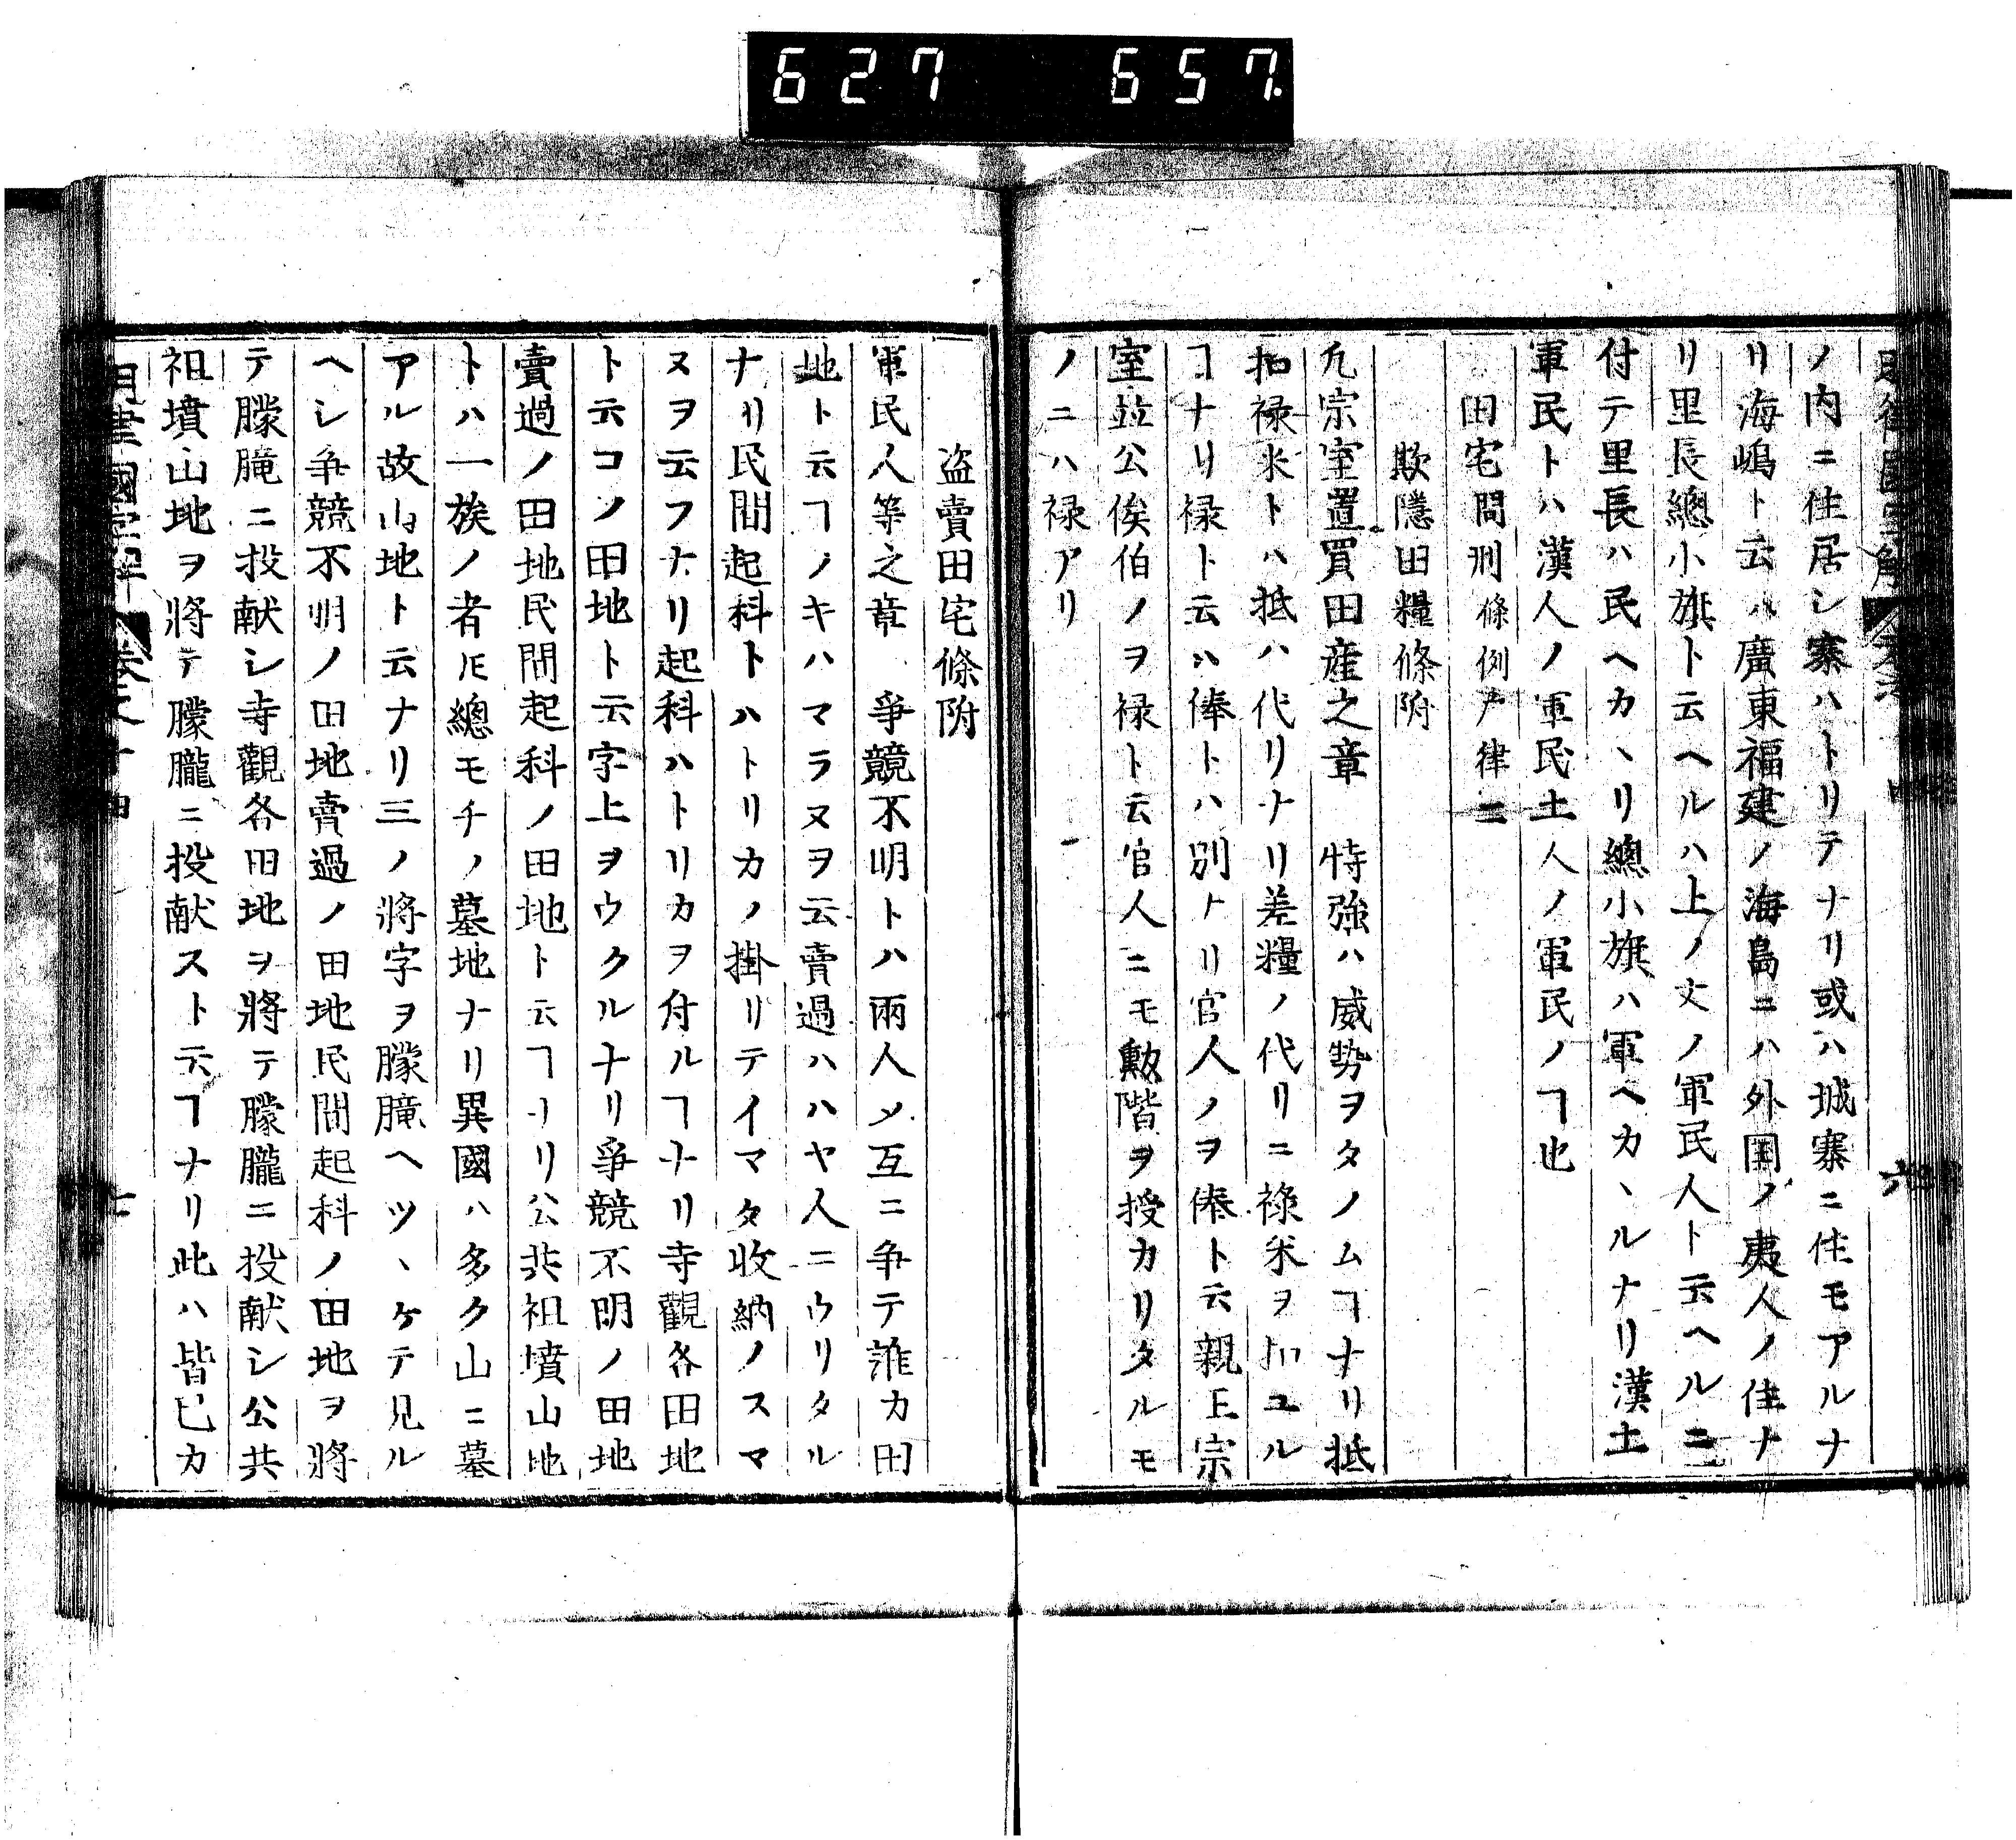 627 657.
ノ内ニ住居シ寨ハトリテナリ或ハ城寨ニ住モアルナ
リ海嶋ト云ハ廣東福建ノ海島ニハ外国ノ夷人ノ住ナ
リ里長總小旗ト云ヘルハ上ノ丈ノ軍民人ト云ヘルニ
付テ里長ハ民ヘカヽリ總小旗ハ軍ヘカヽルナリ漢土
軍民トハ漢人ノ軍民土人ノ軍民ノヿ也
田宅問刑條例戸律ニ
欺隱田糧條附
凢宗室置買田産之章 恃強ハ威勢ヲタノムヿナリ抵
扣禄米トハ抵ハ代リナリ差糧ノ代リニ祿米ヲ扣ユル
ヿナリ禄ト云ハ俸トハ別ナリ官人ノヲ俸ト云親王宗
室並公侯伯ノヲ禄ト云官人ニモ勲階ヲ授カリタルモ
ノニハ禄アリ
盗賣田宅條附
軍民人等之章 爭競不明トハ兩人〆互ニ争テ誰カ田
地ト云ヿノキハマラヌヲ云賣過ハハヤ人ニウリタル
ナリ民間起科トハトリカノ掛リテイマタ收納ノスマ
ヌヲ云フナリ起科ハトリカヲ付ルヿナリ寺觀各田地
ト云コノ田地ト云字上ヲウクルナリ爭競不明ノ田地
賣過ノ田地民間起科ノ田地ト云ヿナリ公共祖墳山地
トハ一族ノ者ノ𪜈總モチノ墓地ナリ異國ハ多ク山ニ墓
アル故山地ト云ナリ三ノ將字ヲ朦朧ヘツヽケテ見ル
ヘシ争競不明ノ田地賣過ノ田地民間起科ノ田地ヲ將
テ朦朧ニ投献シ寺觀各田地ヲ將テ朦朧ニ投献シ公共
祖墳山地ヲ將テ朦朧ニ投献ストテヿナリ此ハ皆已カ
明律國字解 卷之十四 七